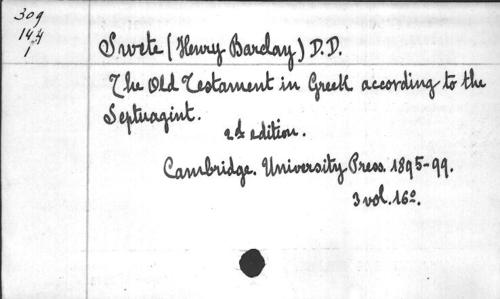 309
14.4
1
Swete (Henry Barclay) D.D.
The Old Testament in Greek according to the
Septuagint.
2d edition.
Cambridge. University Press. 1895-99.
3 vol. 16º.